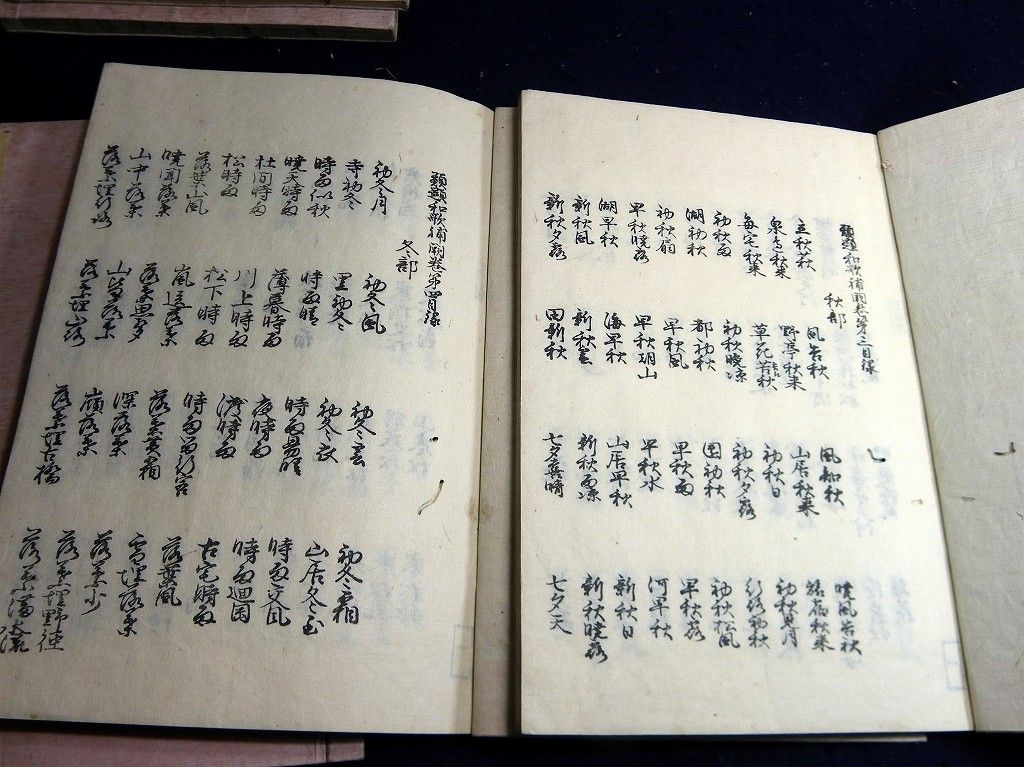 類題和歌補闕巻第三目録
秋部
立秋荻 風告秋 風知秋 暁風告秋
泉辺秋来 野亭秋来 山居秋来 旅宿秋来
毎宅秋来 草花告秋 初秋日 初秋見月
初秋雨 初秋暁涼 初秋夕露 行路初秋
湖初秋 都初秋 初秋 初秋松風
初秋扇 早秋風 早秋雨 早秋露
早秋暁露 早秋朝山 早秋水 河早秋
湖早秋 海早秋 山居早秋 新秋日
新秋風 新秋雲 新秋雨涼 新秋暁露
新秋夕露 田新秋 七夕喜晴 七夕天
類題和歌補闕巻第四目録
冬部
初冬月 初冬風 初冬雲 初冬霜
寺初冬 里初冬 初冬衣 山居冬至
時雨似秋 時雨晴 時雨易晴 時雨交風
暁天時雨 薄暮時雨 夜時雨 時雨
杜間時雨 川上時雨 渡時雨 古宅時雨
松時雨 松下時雨 時雨留行客 落葉風
落葉山風 嵐 落葉 落葉 雪埋落葉
暁聞落葉 落葉 深落葉 落葉少
山中落葉 山皆落葉 嶺落葉 落葉埋野径
落葉埋行路 落葉埋路 落葉埋古橋 落葉満